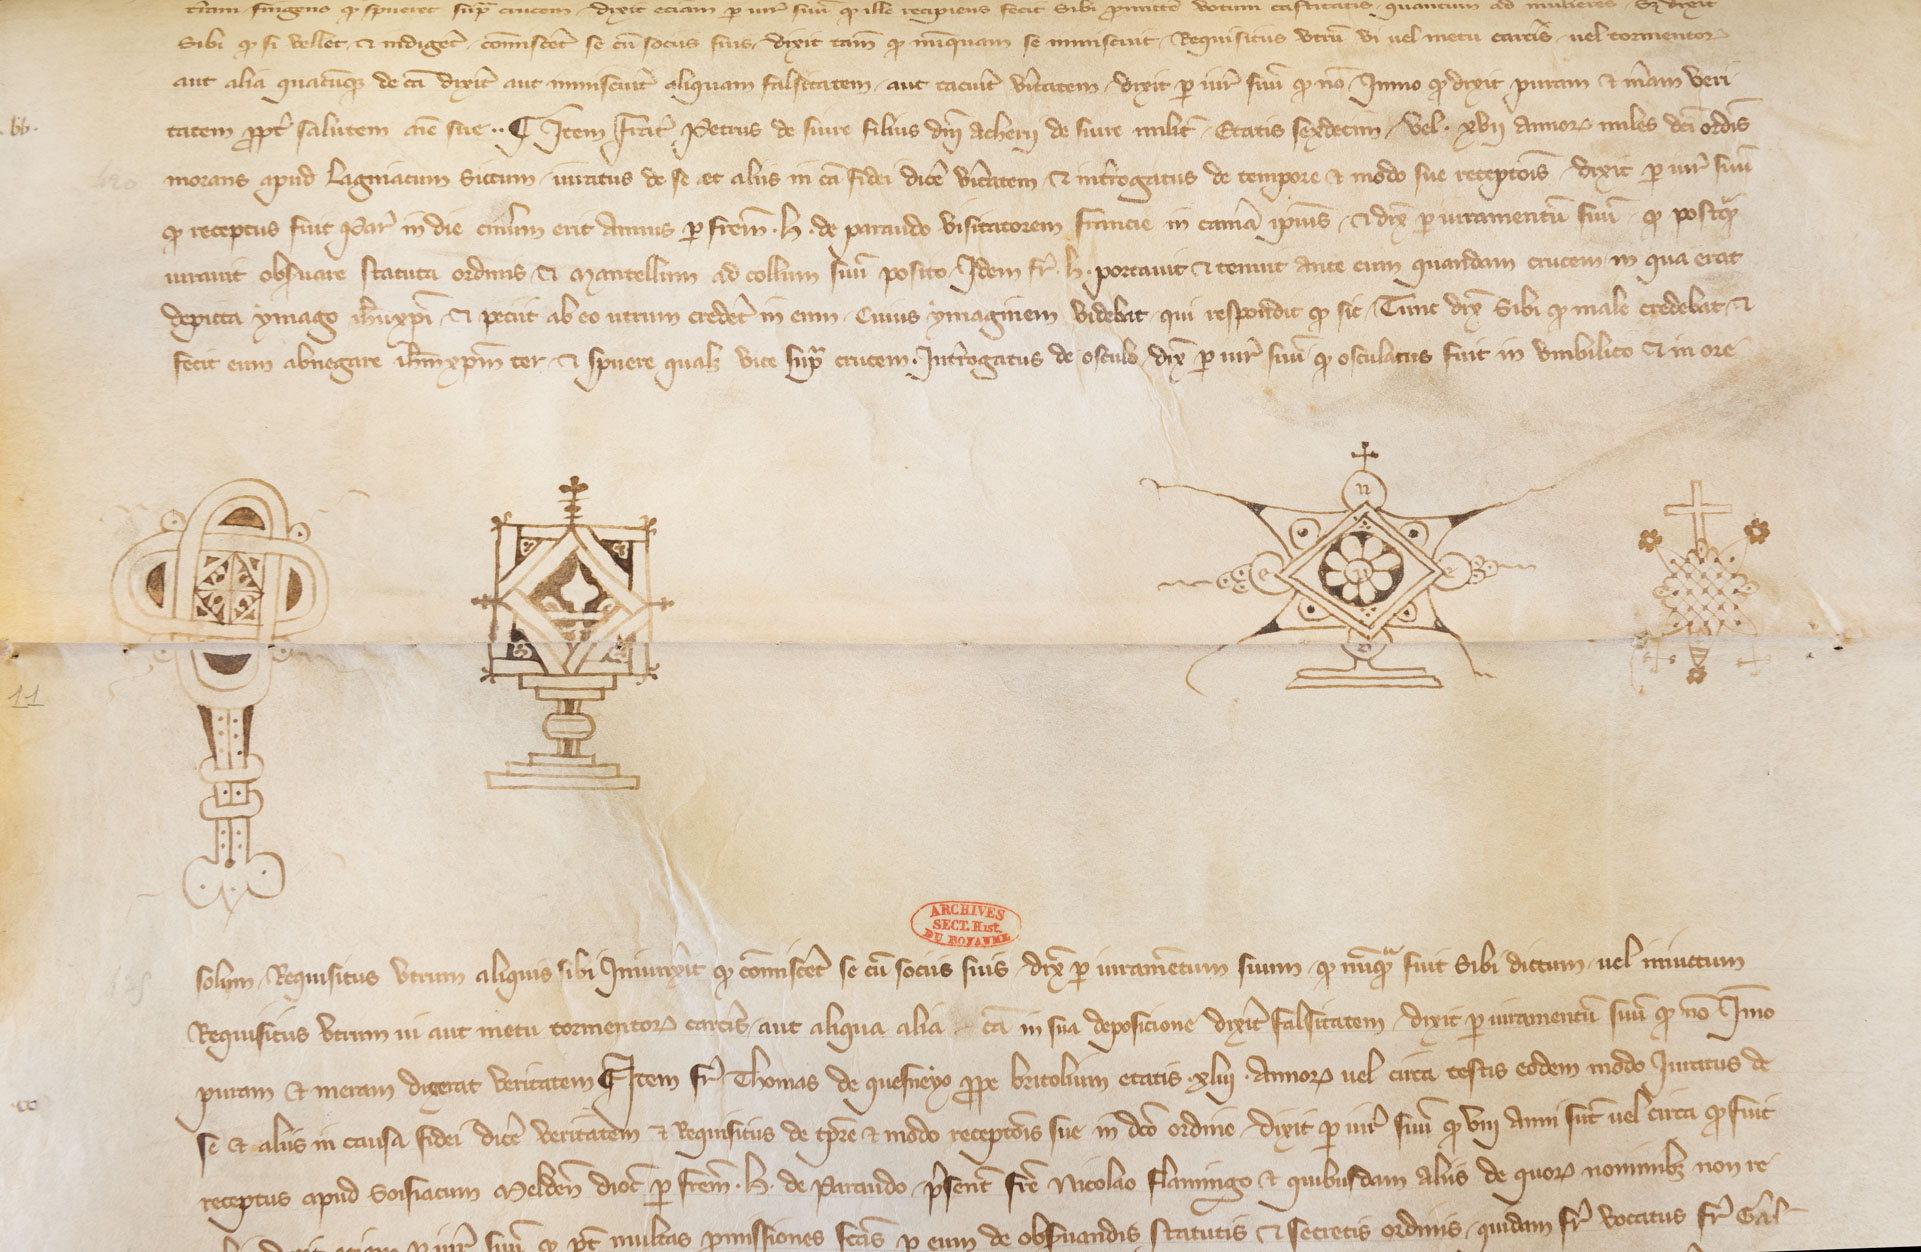 tiram fingens qͥ spueret supͣ crucem · dixit eciam p iurͫ suū qͥ ille recipiens fecit sibi promittē votum castitatis quantum ad mulieres · Sȝ dixit
Sibi qͥ si vellet · & indigeret · cōmiscēt se cū sociis suis · dixit tam̄ qͥ nūquam se inmiscuit · Requisitus vtrū vi uel metu carcīs uel tormentoꝝ
aut alia quacūqȝ de cā dixit̄ aut inmiscuit̄ aliquam falsitatem · aut tacuit̄ v̄itatem · dixit p iurͫ suū qͥ nō · Immo qͥ dixit puram & meram veri
.bb.
tatem ꝓpt̄ salutem aīe sue ·· ¶ Item frat̄ Petrus de siure filius dn̄i acherij de siure milit̄ · Etatis sexdecim · vel · xvij annoꝝ miles dc̄i ordīs
morans apud Lagniacum Siccum · iuratus de se et aliis in cā fidei dicē v̄itatem · & int̄rogatus de tempore & modo sue receptōīs · dixit p iurͫ suū
qͥ receptus fuit Par̄ in die erit annus p frēm · h · de paraudo visitatorem francie in camā ip̄ius · & dix̄ p iuramentū suū · qͥ postqͣ
iurauit obs̄uare statuta ordinis · & Mantellum ad collum suū posito · Idem fr̄ · h · portauit & tenuit ante eum quandam crucem in qua erat
depicta ymago ih̄uxp̄i · & petiit ab eo utrum credet̄ in eum · Cuius ymaginem videbat · qui respondit qͥ sic · Tunc dix̄ sibi qͥ male credebat · &
fecit eum abnegare ih̄mxp̄m ter · & spuere qualȝ vice supͣ crucem · Int̄rogatus de osculo · dix̄ p iurͫ suū qͥ osculatus fuit in vmbilico & in ore
n
e
11
ARCHIVES
SECT. Hist.
DU ROYAUME
solum · Requisitus vtrum aliquis sibi Iniunx̄it qͥ cōmiscēt se cū sociis suis · dix̄ p iuramētum suum · qͥ nūqͣ fuit sibi dictum · uel iniūctum
Requisitus vtrum ui aut metu tormentoꝝ carcīs · aut aliqua alia cā in sua deposicione dixit̄ falsitatem · dixit p iuramentū suū qͥ nō Immo
puram & meram dixerat veritatem ¶ Item fr̄ Thomas de quesneyo ꝓpe britolium etatis · xliij · annoꝝ uel circa testis eodem modo Iuratus de
se & aliis in causa fidei dicē veritatem & Requisitus de tp̄re & modo receptōīs sue in dc̄o ordine · dixit p iurͫ suū qͥ viij anni sūt uel circa qͥ fuit
receptus apud Soisiacum Meldeñ dioc̄ p frēm · h · de Paraudo · p̄sent̄ fr̄e Nicolao Flamingo & quibusdam aliis de quoꝝ nominibȝ non re
p iurͫ suū qͥ pt̄ multas promissiones fc̄as p eum de obs̄uandis statutis & secretis ordinis · quidam fr̄ vocatus fr̄